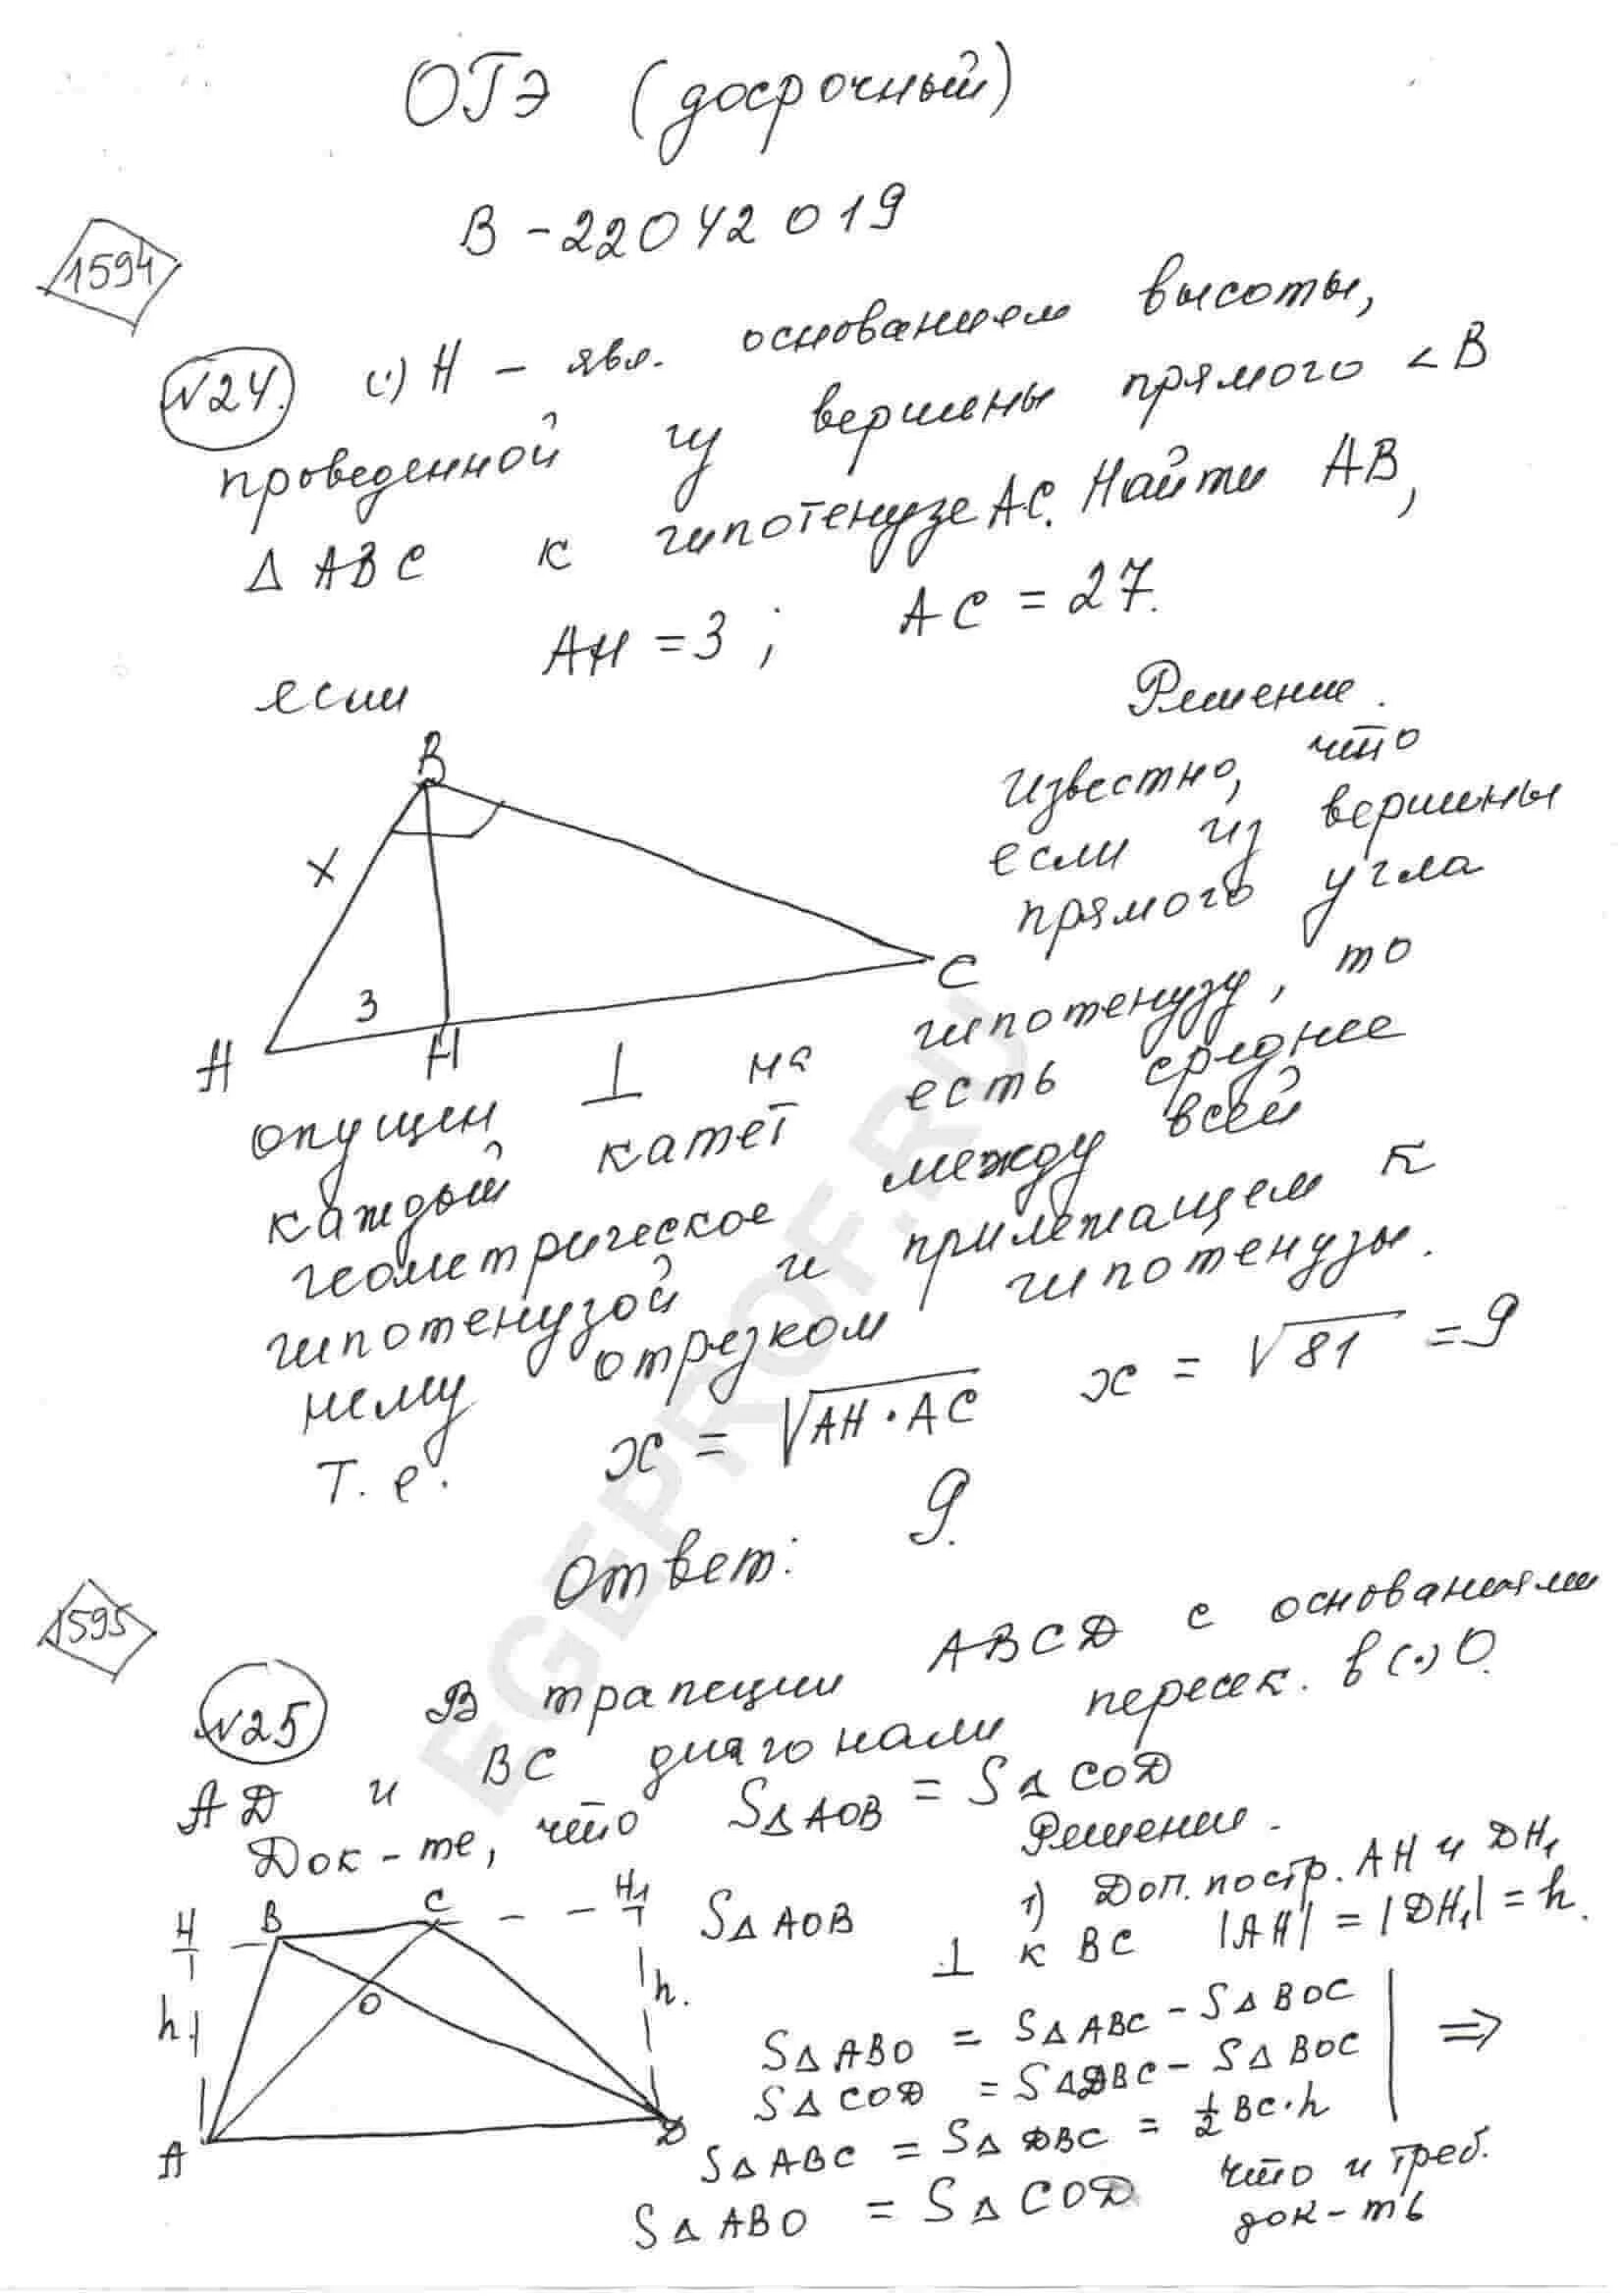 ОГЭ (досрочный)
В - 22042019
1594
№24. (·) H - явл. основанием высоты,
проведенной из вершины прямого ∠B
Δ ABC к гипотенузе AC. Найти AB,
если AH = 3 ; AC = 27.
Решение.
Известно, что
если из вершины
прямого угла
опущен ⊥ на гипотенузу, то
каждый катет есть среднее
геометрическое между всей
гипотенузой и прилежащем к
нему отрезком гипотенузы.
Т. е. x = √AH · AC x = √81 = 9
Ответ: 9.
B
X
3
A
H
C
1595
№25 В трапеции ABCD с основаниями
AD и BC диагонали пересек. в (·) O.
Док-те, что SΔAOB = SΔCOD
Решение.
SΔAOB 1) Доп. постр. AH и DH₁
⊥ к BC |AH| = |DH₁| = h.
SΔABO = SΔABC - SΔBOC
SΔCOD = SΔDBC - SΔBOC ⇒
SΔABC = SΔDBC = 1/2 BC · h
SΔABO = SΔCOD что и треб.
док-ть
H
B
C
H₁
O
h.
h.
A
D
EGEPROF.RU